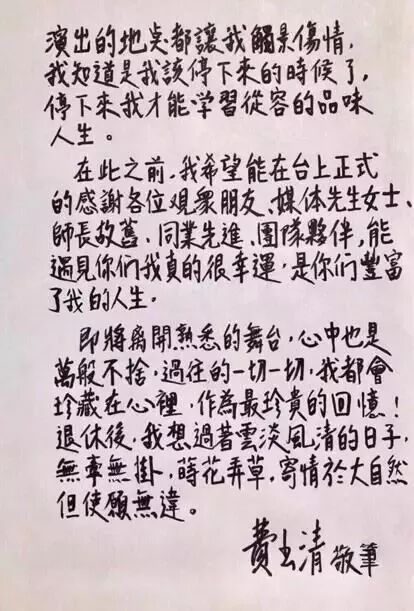 演出的地点都讓我觸景傷情,
我知道是我該停下來的時候了,
停下來我才能学習從容的品味
人生。
在此之前,我希望能在台上正式
的感謝各位观眾朋友、媒体先生女士、
師長故舊、同業先進、團隊夥伴,能
遇見你们我真的很幸運,是你们豐富
了我的人生。
即將离開熟悉的舞台,心中也是
萬般不捨,過往的一切一切,我都會
珍藏在心裡,作為最珍貴的回憶!
退休後,我想過著雲淡風清的日子,
無牽無掛,蒔花弄草,寄情於大自然
但使願無違。
費玉清 敬筆